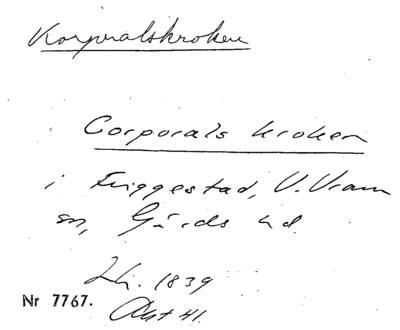 Korpralskroken
Corporals kroken
i Friggestad, V. Vram
sn, Gärds hd.
1839
Nr 7767.
Akt 41.